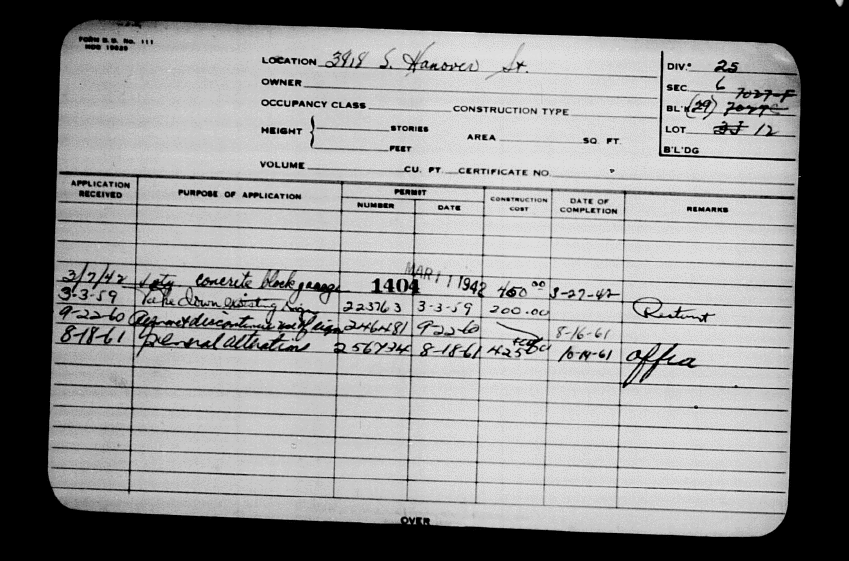 FORM B.D. No. 111
LOCATION 3918 S. Hanover St.
DIV. 25
OWNER
SEC 6 7027-F
OCCUPANCY CLASS CONSTRUCTION TYPE
BL'K (29)
HEIGHT STORIES FEET AREA SQ. FT.
LOT 12
B'L'DG
VOLUME CU. FT. CERTIFICATE NO.
APPLICATION RECEIVED PURPOSE OF APPLICATION PERMIT NUMBER DATE CONSTRUCTION COST DATE OF COMPLETION REMARKS
3/7/42 1 sty concrete block garage 1404 MAR 11 1942 450.00 3-27-42
3-3-59 Take down existing sign 223763 3-3-59 200.00 Restrunt
9-22-60 discontinue use of sign 246481 9-22-60 8-16-61
8-18-61 general alterations 256724 8-18-61 425 10-19-61
OVER